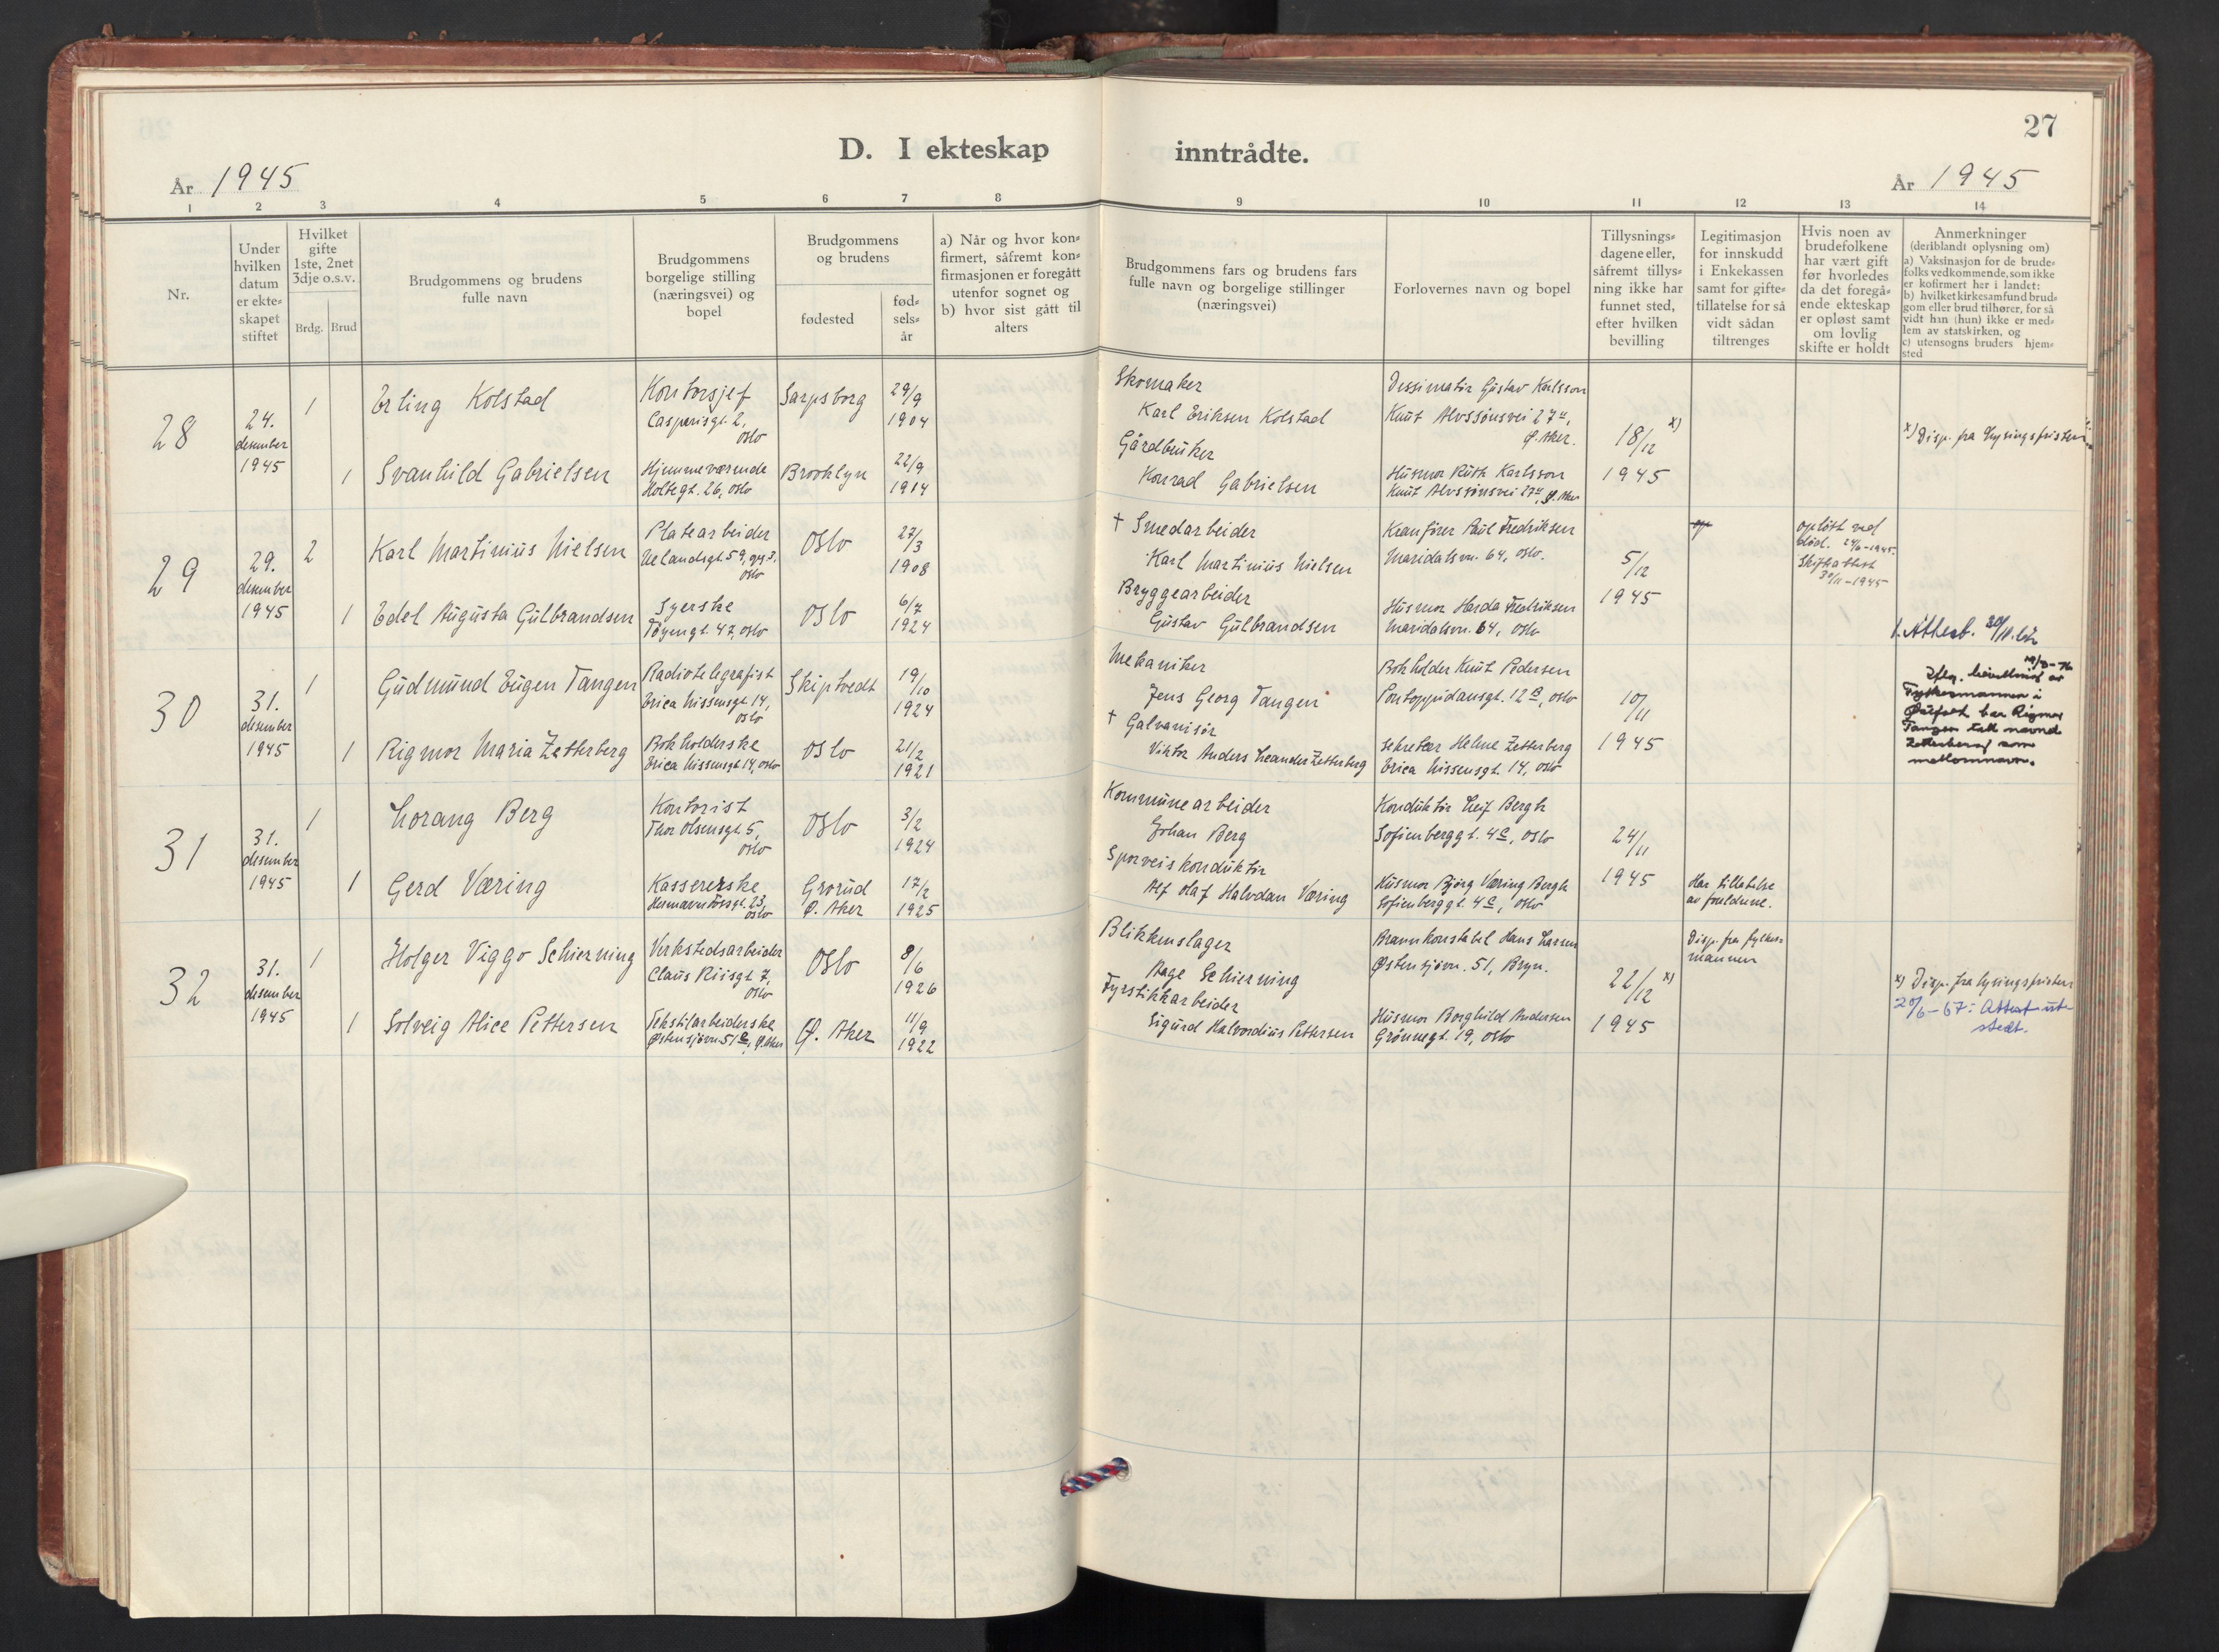 27
D. I ekteskap inntrådte.
År 1945
År 1945
1 2 3 4 5 6 7 8 9 10 11 12 13 14
Nr.
Under
hvilken
datum
er ekte-
skapet
stiftet
Hvilket
gifte
1ste, 2net
3dje o.s.v.
Brdg. Brud
Brudgommens og brudens
fulle navn
Brudgommens
borgelige stilling
(næringsvei) og
bopel
Brudgommens
og brudens
fødested
fød-
sels-
år
a) Når og hvor kon-
firmert, såfremt kon-
firmasjonen er foregått
utenfor sognet og
b) hvor sist gått til
alters
Brudgommens fars og brudens fars
fulle navn og borgelige stillinger
(næringsvei)
Forlovernes navn og bopel
Tillysnings-
dagene eller,
såfremt tillys-
ning ikke har
funnet sted,
efter hvilken
bevilling
Legitimasjon
for innskudd
i Enkekassen
samt for gifte-
tillatelse for så
vidt sådan
tiltrenges
Hvis noen av
brudefolkene
har vært gift
før hvorledes
da det foregå-
ende ekteskap
er opløst samt
om lovlig
skifte er holdt
Anmerkninger
(deriblandt oplysning om)
a) Vaksinasjon for de brude-
folks vedkommende, som ikke
er kofirmert her i landet:
b) hvilket kirkesamfund brud-
gom eller brud tilhører, for så
vidt han (hun) ikke er med-
lem av statskirken, og
c) utensogns bruders hjem-
sted
28
24.
desember
1945
1
Erling Kolstad
Kontorsjef
Casparisgt. 2,
Oslo
Sarpsborg
29/9
1904
Skomaker
Karl Eriksen Kolstad
Gustav Karlsson
Knut Alvssønsvei 27a,
Ø. Aker.
18/12 x)
1945
x) Disp. fra lysingsfristen
1
Svanhild Gabrielsen
Hjemmeværende
Holtegt. 26, Oslo
Brooklyn
22/9
1914
Gårdbruker
Konrad Gabrielsen
Husmor Ruth Karlsson
Knut Alvssønsvei 27a, Ø. Aker
29
29.
desember
1945
2
Karl Martinius Nielsen
Platearbeider
Uelandsgt. 59, opg. 3,
Oslo
Oslo
27/3
1908
† Smedarbeider
Karl Martinius Nielsen
Kranfører Paul Fredriksen
Maridalsvn. 64, Oslo.
5/12
1945
opløst ved
død. 24/6-1945.
Skifteattest
30/11-1945
1
Edel Augusta Gulbrandsen
Syerske
Tøyengt. 47, Oslo
Oslo
6/7
1924
Bryggearbeider
Gustav Gulbrandsen
Husmor Harda Fredriksen
Maridalsvn. 64, Oslo
30
31.
desember
1945
1
Gudmund Eugen Tangen
Radiotelegrafist
Erica Nissensgt. 14,
Oslo
Skiptvedt
19/10
1924
Mekaniker
Jens Georg Tangen
Bokholder Knut Pedersen
Pontoppidansgt. 12 B, Oslo
10/11
1945
Ifølg. bevilling av
Fylkesmannen i
Østfold har Rigmor
Tangen tatt navnet
Zetterberg som
mellomnavn.
1
Rigmor Maria Zetterberg
Bokholderske
Erica Nissensgt. 14, Oslo
Oslo
21/2
1921
† Galvanisør
Viktor Anders Leander Zetterberg
Sekretær Helene Zetterberg
Erica Nissensgt. 14, Oslo
31
31.
desember
1945
1
Lorang Berg
Kontorist
Thor Olsensgt. 5,
Oslo
Oslo
3/2
1924
Kommunearbeider
Johan Berg
Konduktør Leif Bergh
Sofienberggt. 4 C, Oslo
24/11
1945
1
Gerd Væring
Kassererske
Hesmann Fossgt. 23,
Oslo
Grorud
Ø. Aker
17/2
1925
Sporveiskonduktør
Alf Olaf Halvdan Væring
Husmor Bjørg Væring Bergh
Sofienberggt. 4 C, Oslo
Har tillatelse
av foreldrene.
32
31.
desember
1945
1
Holger Viggo Schierning
Verkstedsarbeider
Claus Riisgt. 7,
Oslo
Oslo
8/6
1926
Blikkenslager
Aage Schierning
Brannkonstabel Hans Larsen
Østensjøvn. 51, Bryn.
22/12 x)
1945
Disp. fra fylkes-
mannen
x) Disp. fra lysingsfristen
20/6-67: Attest ut-
stedt.
1
Solveig Alice Pettersen
Tekstilarbeiderske
Østensjøvn. 51 B, Ø. Aker
Ø. Aker
11/9
1922
Fyrstikkarbeider
Sigurd Halvordius Pettersen
Husmor Borghild Andersen
Grønnegt. 19, Oslo